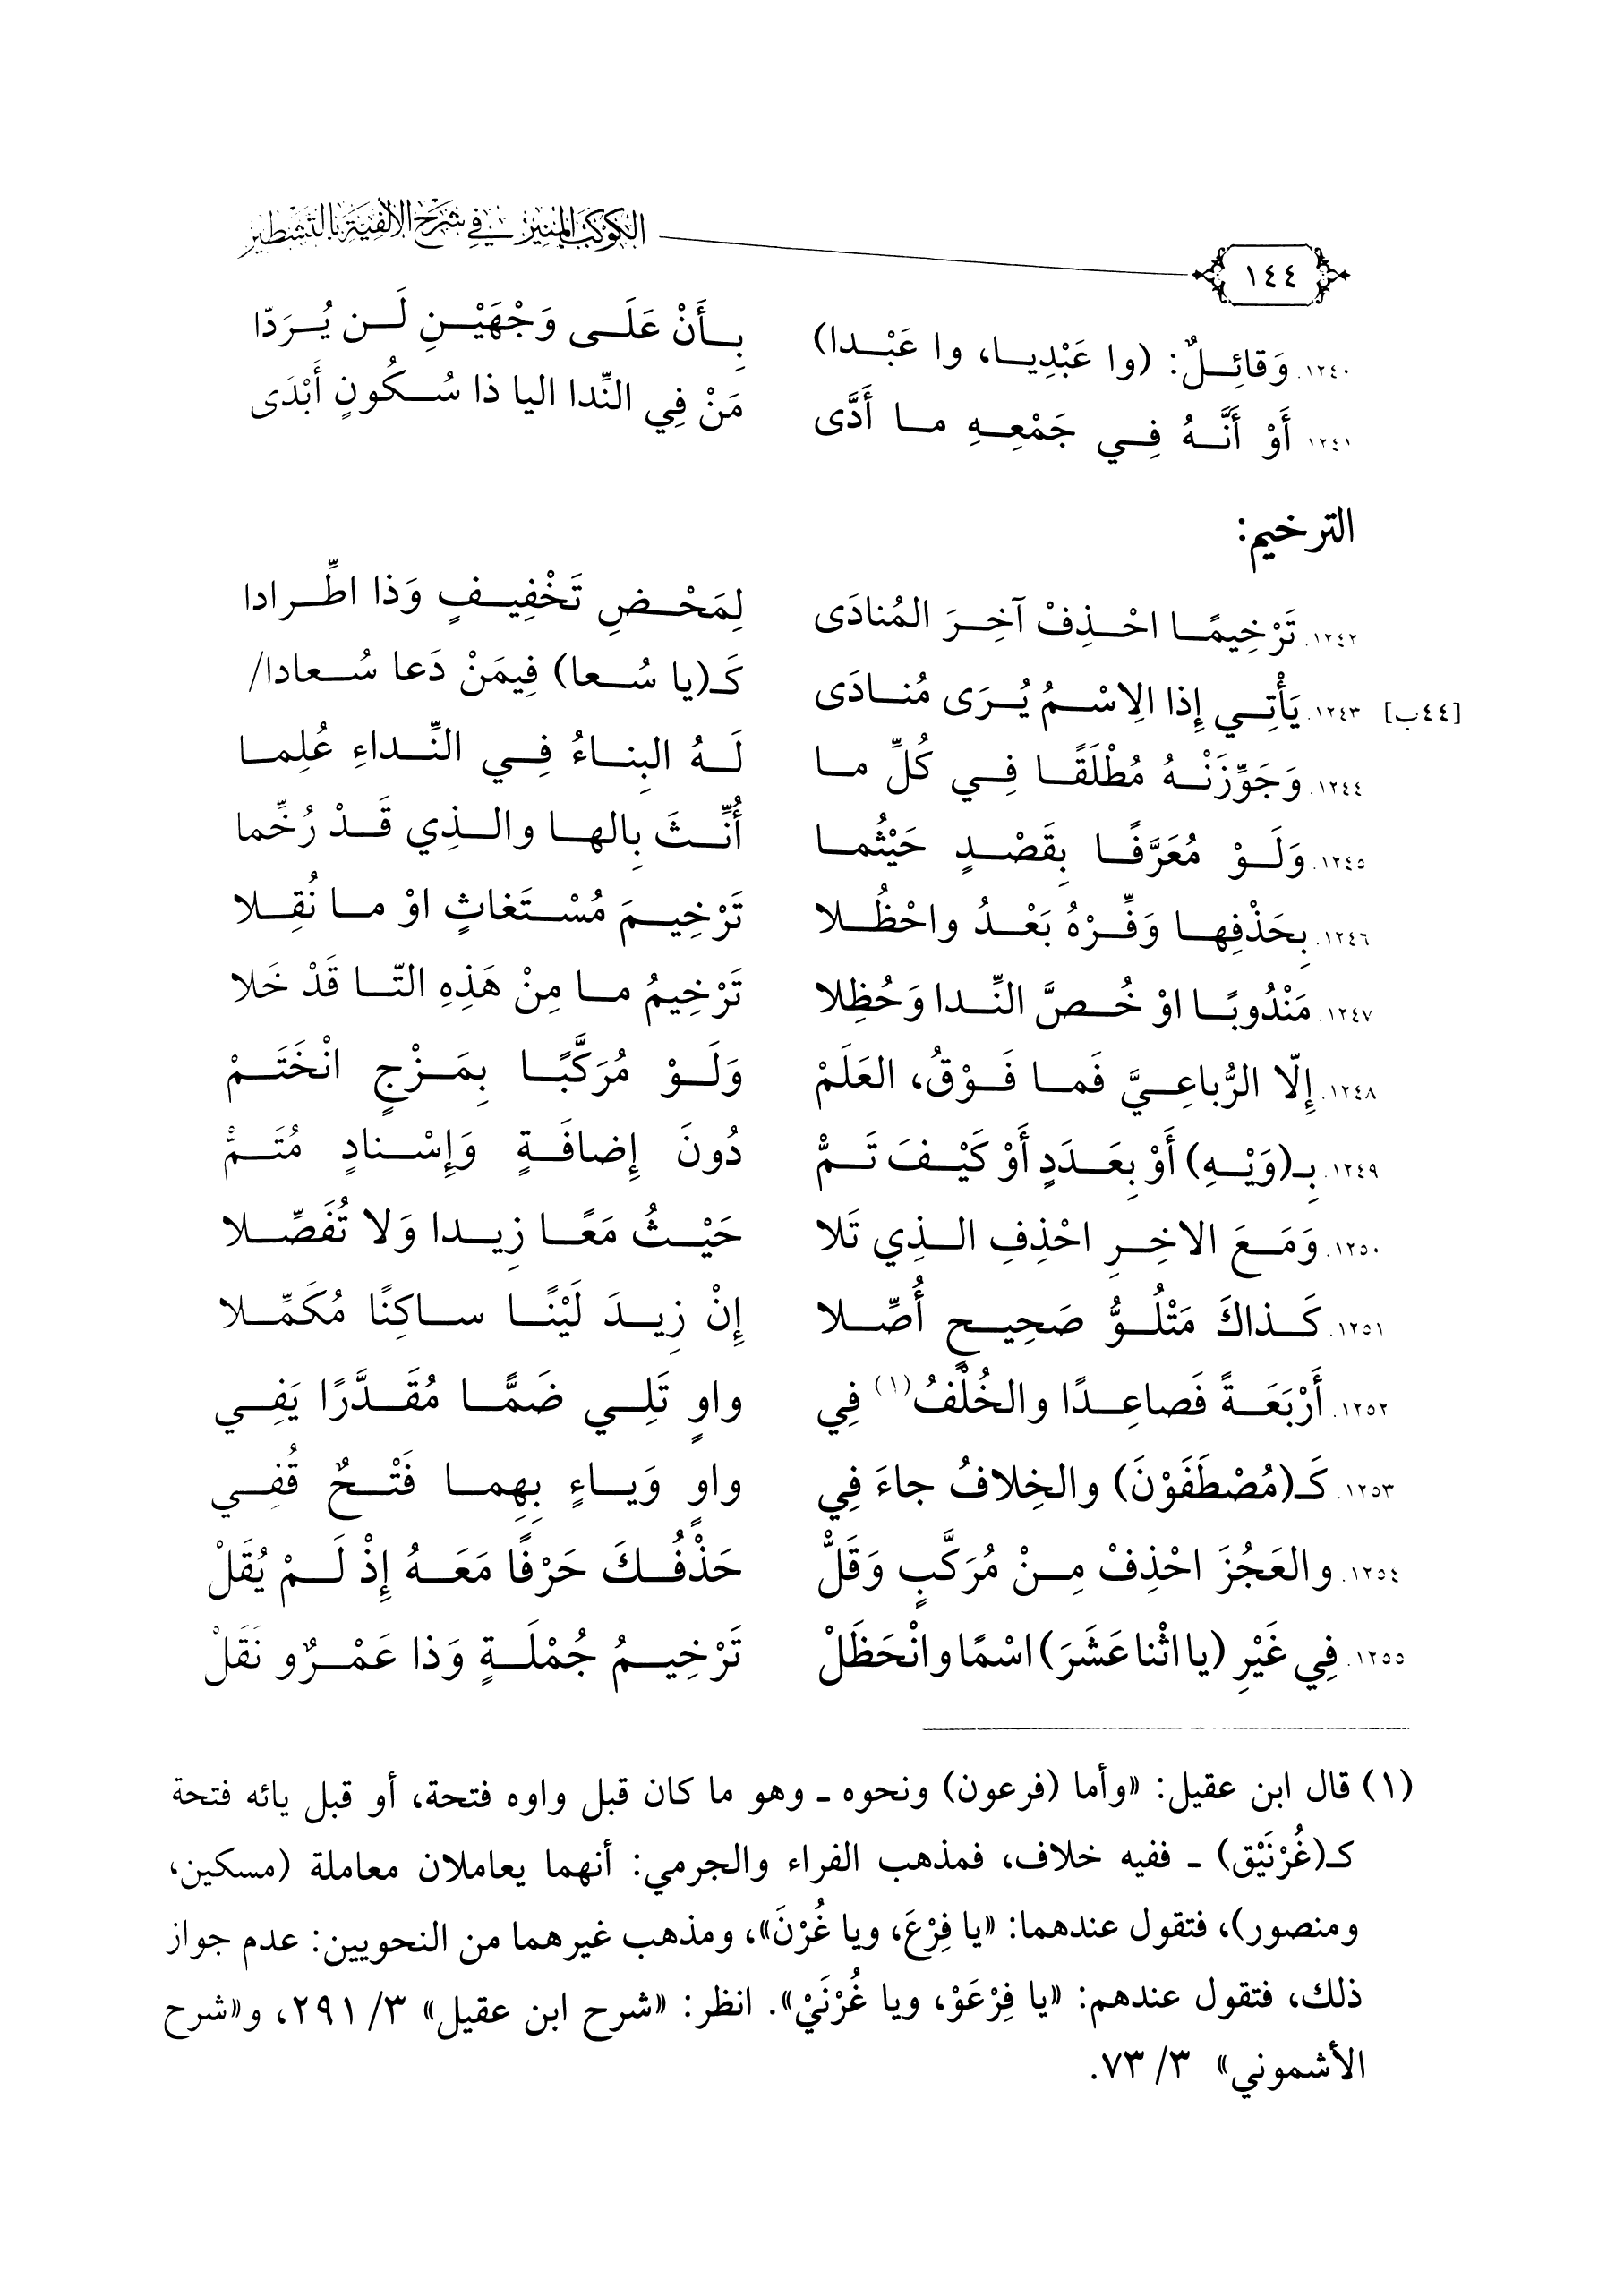 ١٤٤ الكوكب المنير في شرح الألفية بالتشطير
١٢٤٠. وَقائِلٌ: (وا عَبْدِيا، وا عَبْدا) بِأَنْ عَلَى وَجْهَيْنِ لَن يُرَدّا
١٢٤١. أَوْ أَنَّهُ فِي جَمْعِهِ ما أَدَّى مَنْ فِي النِّدا اليا ذا سُكُونٍ أَبْدَى
الترخيم:
١٢٤٢. تَرْخِيمًا احْذِفْ آخِرَ المُنادَى لِمَحْضِ تَخْفِيفٍ وَذا اطِّرادا
[٤٤ب] ١٢٤٣. يَأْتِي إِذا الِاسْمُ يُرَى مُنادَى كَـ(يا سُعا) فِيمَنْ دَعا سُعادا/
١٢٤٤. وَجَوِّزَنْهُ مُطْلَقًا فِي كُلِّ ما لَهُ البِناءُ فِي النِّداءِ عُلِما
١٢٤٥. وَلَوْ مُعَرَّفًا بِقَصْدٍ حَيْثُما أُنِّثَ بِالها والذِي قَدْ رُخِّما
١٢٤٦. بِحَذْفِها وَفِّرْهُ بَعْدُ واحْظُلا تَرْخِيمَ مُسْتَغاثٍ اوْ ما نُقِلا
١٢٤٧. مَنْدُوبًا اوْ خُصَّ النِّدا وَحُظِلا تَرْخِيمُ ما مِنْ هَذِهِ التّا قَدْ خَلا
١٢٤٨. إِلّا الرُّباعِيَّ فَما فَوْقُ، العَلَمْ وَلَوْ مُرَكَّبًا بِمَزْجٍ انْخَتَمْ
١٢٤٩. بِـ(وَيْهِ) أَوْ بِعَدَدٍ أَوْ كَيْفَ تَمّْ دُونَ إِضافَةٍ وَإِسْنادٍ مُتَمّْ
١٢٥٠. وَمَعَ الاخِرِ احْذِفِ الذِي تَلا حَيْثُ مَعًا زِيدا وَلا تُفَصِّلا
١٢٥١. كَذاكَ مَتْلُوُّ صَحِيحٍ أُصِّلا إِنْ زِيدَ لَيْنًا ساكِنًا مُكَمِّلا
١٢٥٢. أَرْبَعَةً فَصاعِدًا والخُلْفُ(١) فِي واوٍ تَلِي ضَمًّا مُقَدَّرًا يَفِي
١٢٥٣. كَـ(مُصْطَفَوْنَ) والخِلافُ جاءَ فِي واوٍ وَياءٍ بِهِما فَتْحٌ قُفِي
١٢٥٤. والعَجُزَ احْذِفْ مِنْ مُرَكَّبٍ وَقَلّْ حَذْفُكَ حَرْفًا مَعَهُ إِذْ لَمْ يُقَلْ
١٢٥٥. فِي غَيْرِ (يا اثْنا عَشَرَ) اسْمًا وانْحَظَلْ تَرْخِيمُ جُمْلَةٍ وَذا عَمْرٌو نَقَلْ
(١) قال ابن عقيل: «وأما (فرعون) ونحوه ـ وهو ما كان قبل واوه فتحة، أو قبل يائه فتحة
كـ(غُرْنَيْق) ـ ففيه خلاف، فمذهب الفراء والجرمي: أنهما يعاملان معاملة (مسكين،
ومنصور)، فتقول عندهما: «يا فِرْعَ، ويا غُرْنَ»، ومذهب غيرهما من النحويين: عدم جواز
ذلك، فتقول عندهم: «يا فِرْعَوْ، ويا غُرْنَيْ». انظر: «شرح ابن عقيل» ٣/ ٢٩١، و«شرح
الأشموني» ٣/ ٧٣.